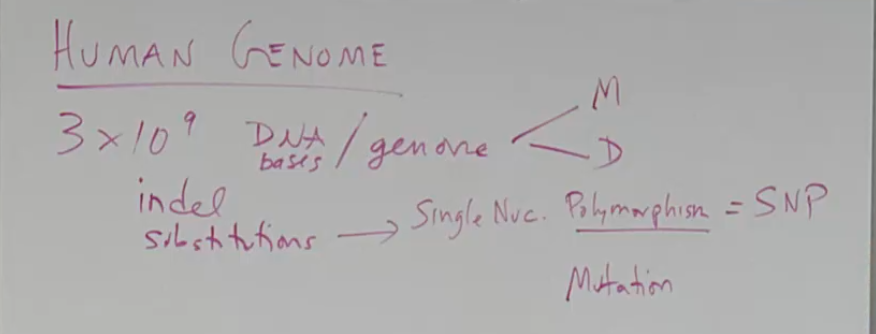 HUMAN GENOME
3×10⁹ DNA bases / genome M D
indel
substitutions → Single Nuc. Polymorphism = SNP
Mutation